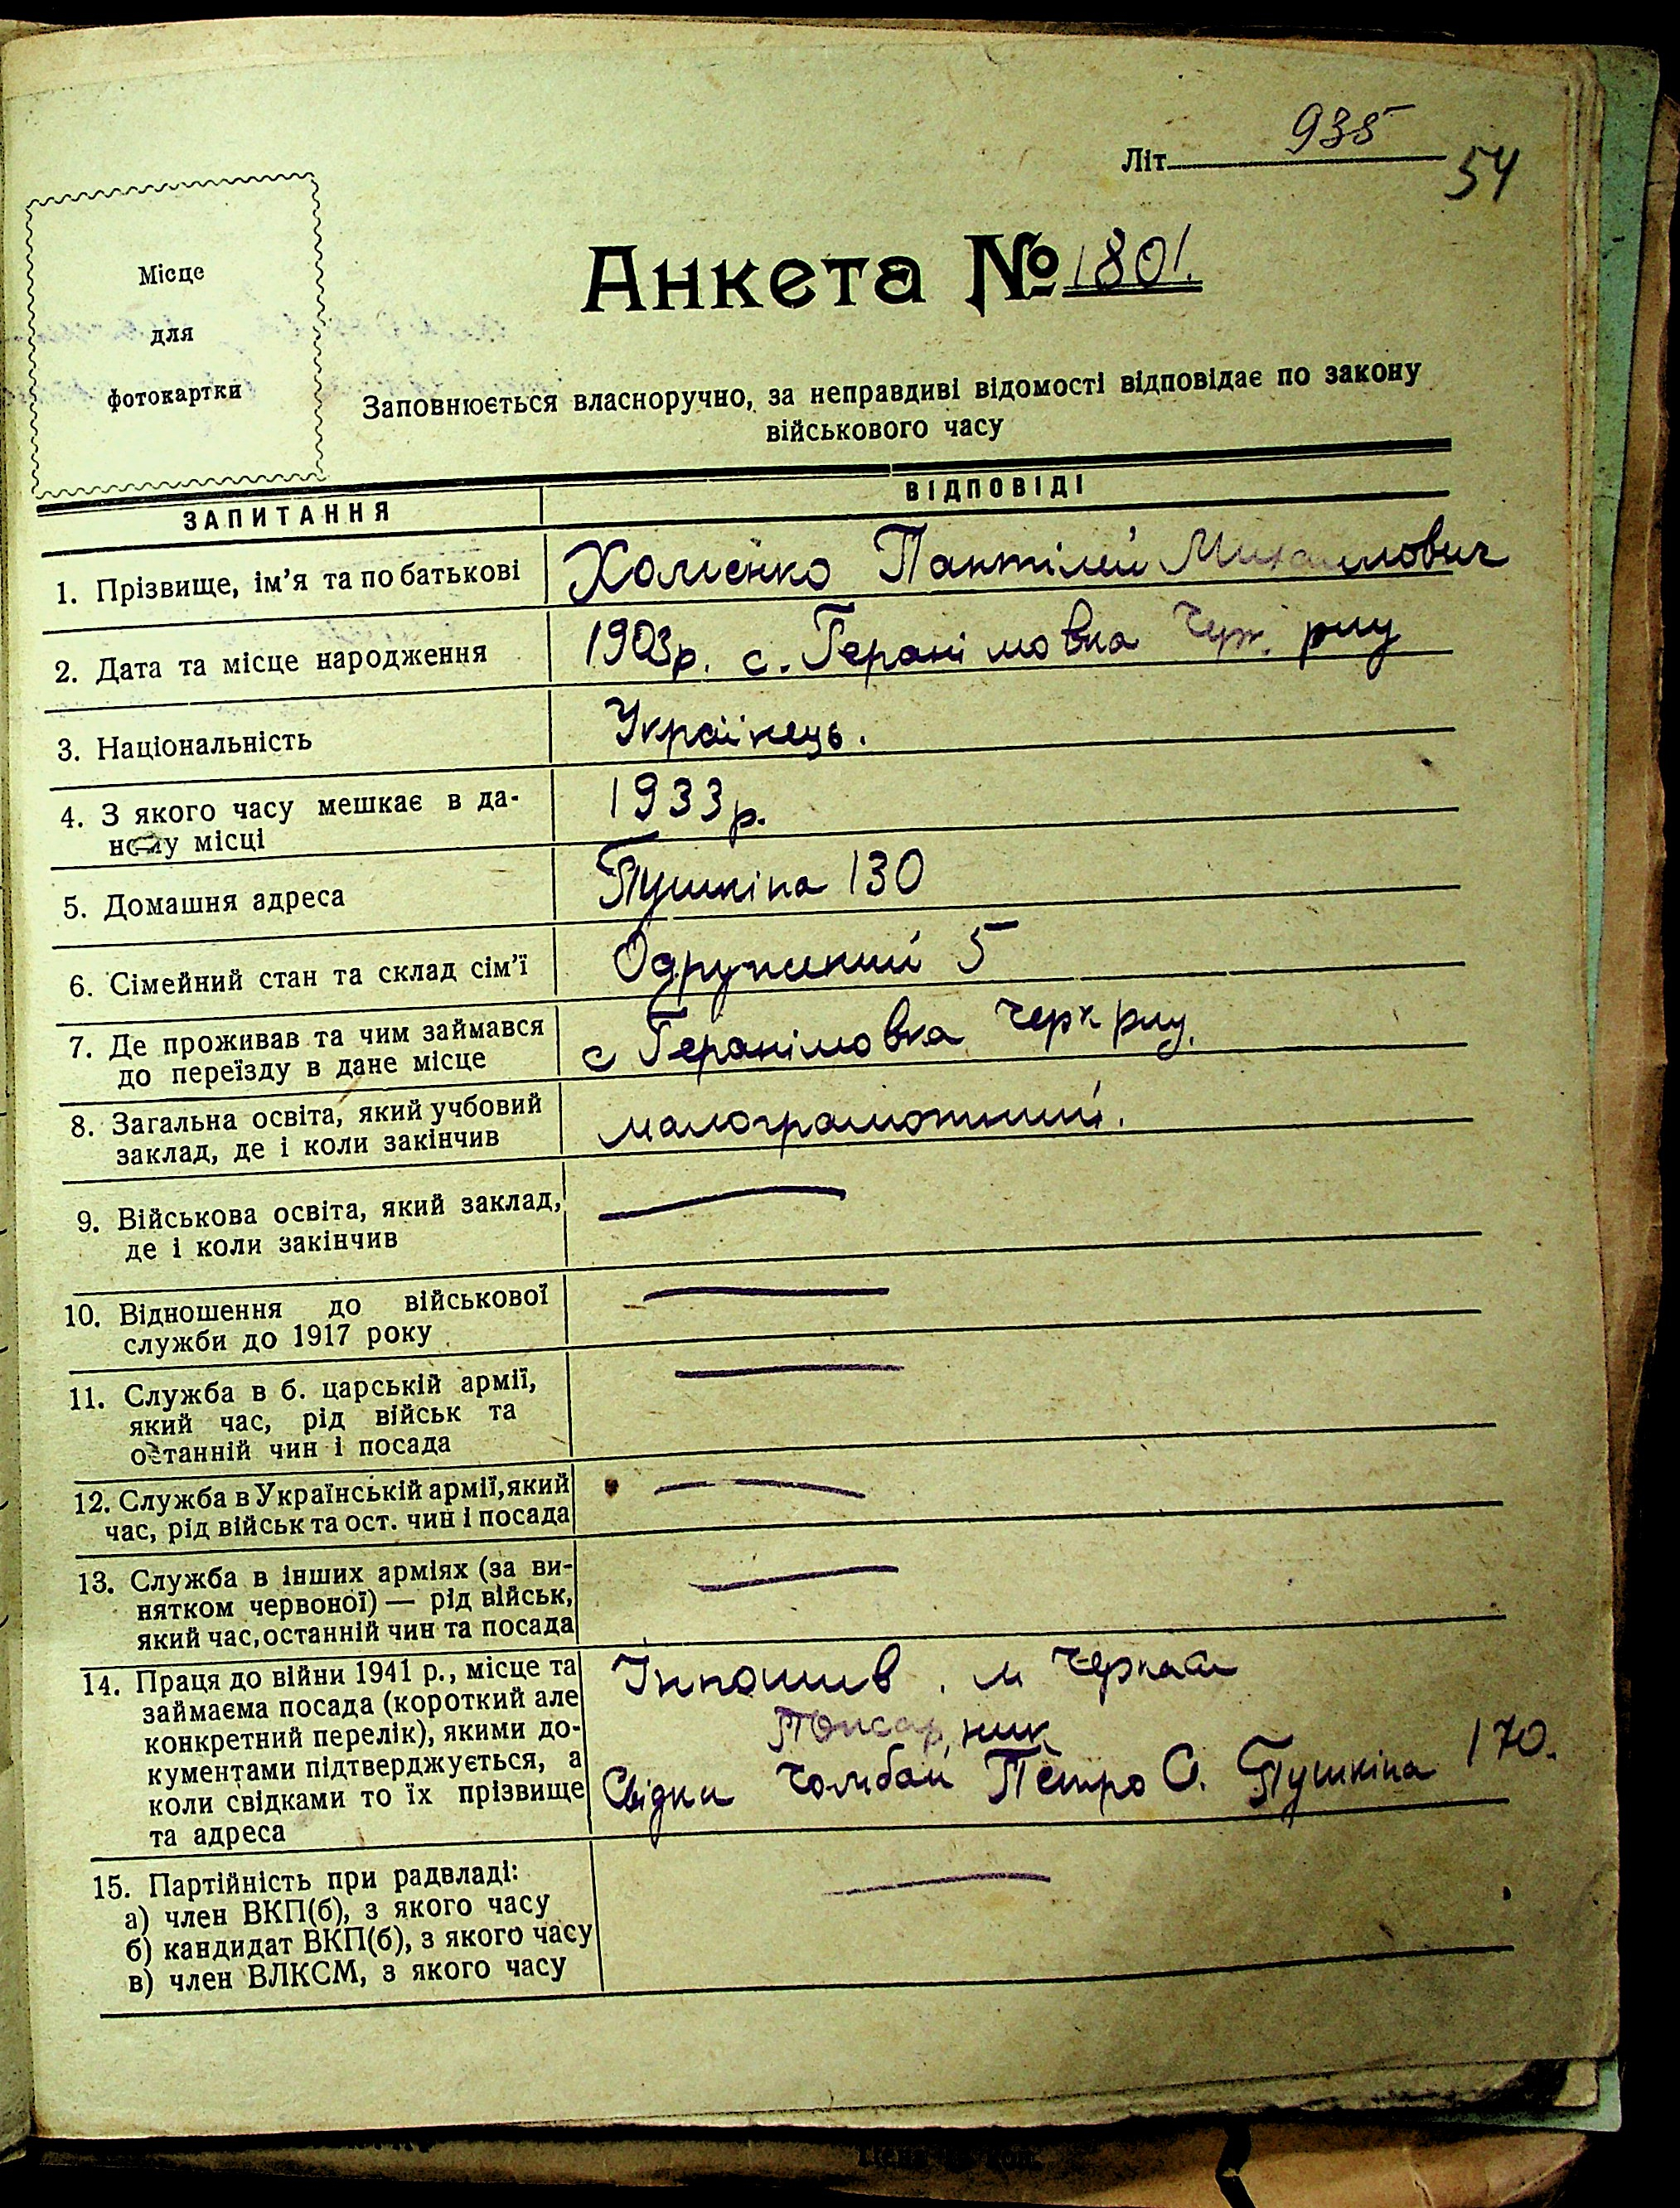 Літ 935
54
Місце
для
фотокартки
Анкета № 1801.
Заповнюється власноручно, за неправдиві відомості відповідає по закону
військового часу
ЗАПИТАННЯ
ВІДПОВІДІ
1. Прізвище, ім’я та по батькові
Хоменко Пантілей Михайлович
2. Дата та місце народження
1903р. с. Геранімовка Черк. рну
3. Національність
Українець.
4. З якого часу мешкає в да-
ному місці
1933р.
5. Домашня адреса
Пушкіна 130
6. Сімейний стан та склад сім’ї
Одружений 5
7. Де проживав та чим займався
до переїзду в дане місце
с Геранімовка Черк рну.
8. Загальна освіта, який учбовий
заклад, де і коли закінчив
малограмотний.
9. Військова освіта, який заклад,
де і коли закінчив
10. Відношення до військової
служби до 1917 року
11. Служба в б. царській армії,
який час, рід військ та
останній чин і посада
12. Служба в Українській армії, який
час, рід військ та ост. чин і посада
13. Служба в інших арміях (за ви-
нятком червоної) — рід військ,
який час, останній чин та посада
14. Праця до війни 1941 р., місце та
займаєма посада (короткий але
конкретний перелік), якими до-
кументами підтверджується, а
коли свідками то їх прізвище
та адреса
Інпошив. м Черкаси
Свідки Петро О. Пушкіна 170.
15. Партійність при радвладі:
а) член ВКП(б), з якого часу
б) кандидат ВКП(б), з якого часу
в) член ВЛКСМ, з якого часу